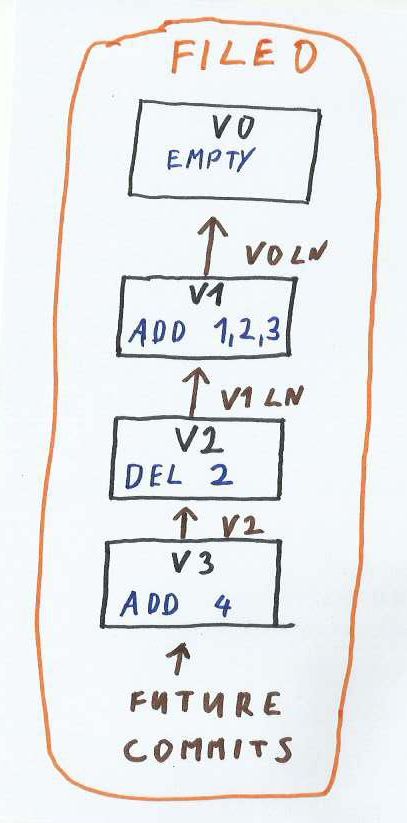 FILE 0
V0
EMPTY
V0 LN
V1
ADD 1,2,3
V1 LN
V2
DEL 2
V2
V3
ADD 4
FUTURE
COMMITS